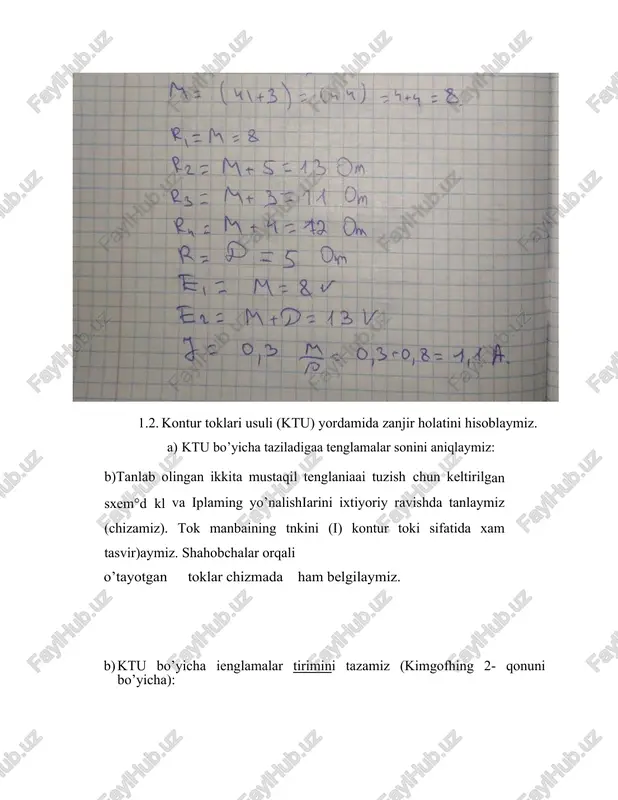 M = (41+3) = (44) = 4+4 = 8
R₁ = M = 8
R₂ = M + 5 = 13 Om
R₃ = M + 3 = 11 Om
R₄ = M + 4 = 12 Om
R = D = 5 Om
E₁ = M = 8 V
E₂ = M + D = 13 V
J = 0,3 M/D = 0,3+0,8 = 1,1 A.
1.2. Kontur toklari usuli (KTU) yordamida zanjir holatini hisoblaymiz.
a) KTU bo’yicha taziladigaa tenglamalar sonini aniqlaymiz:
b)Tanlab olingan ikkita mustaqil tenglaniaai tuzish chun keltirilgan
sxem°d kl va Iplaming yo’nalishIarini ixtiyoriy ravishda tanlaymiz
(chizamiz). Tok manbaining tnkini (I) kontur toki sifatida xam
tasvir)aymiz. Shahobchalar orqali
o’tayotgan toklar chizmada ham belgilaymiz.
b) KTU bo’yicha ienglamalar tirimini tazamiz (Kimgofhing 2- qonuni
bo’yicha):
FaylHub.uz